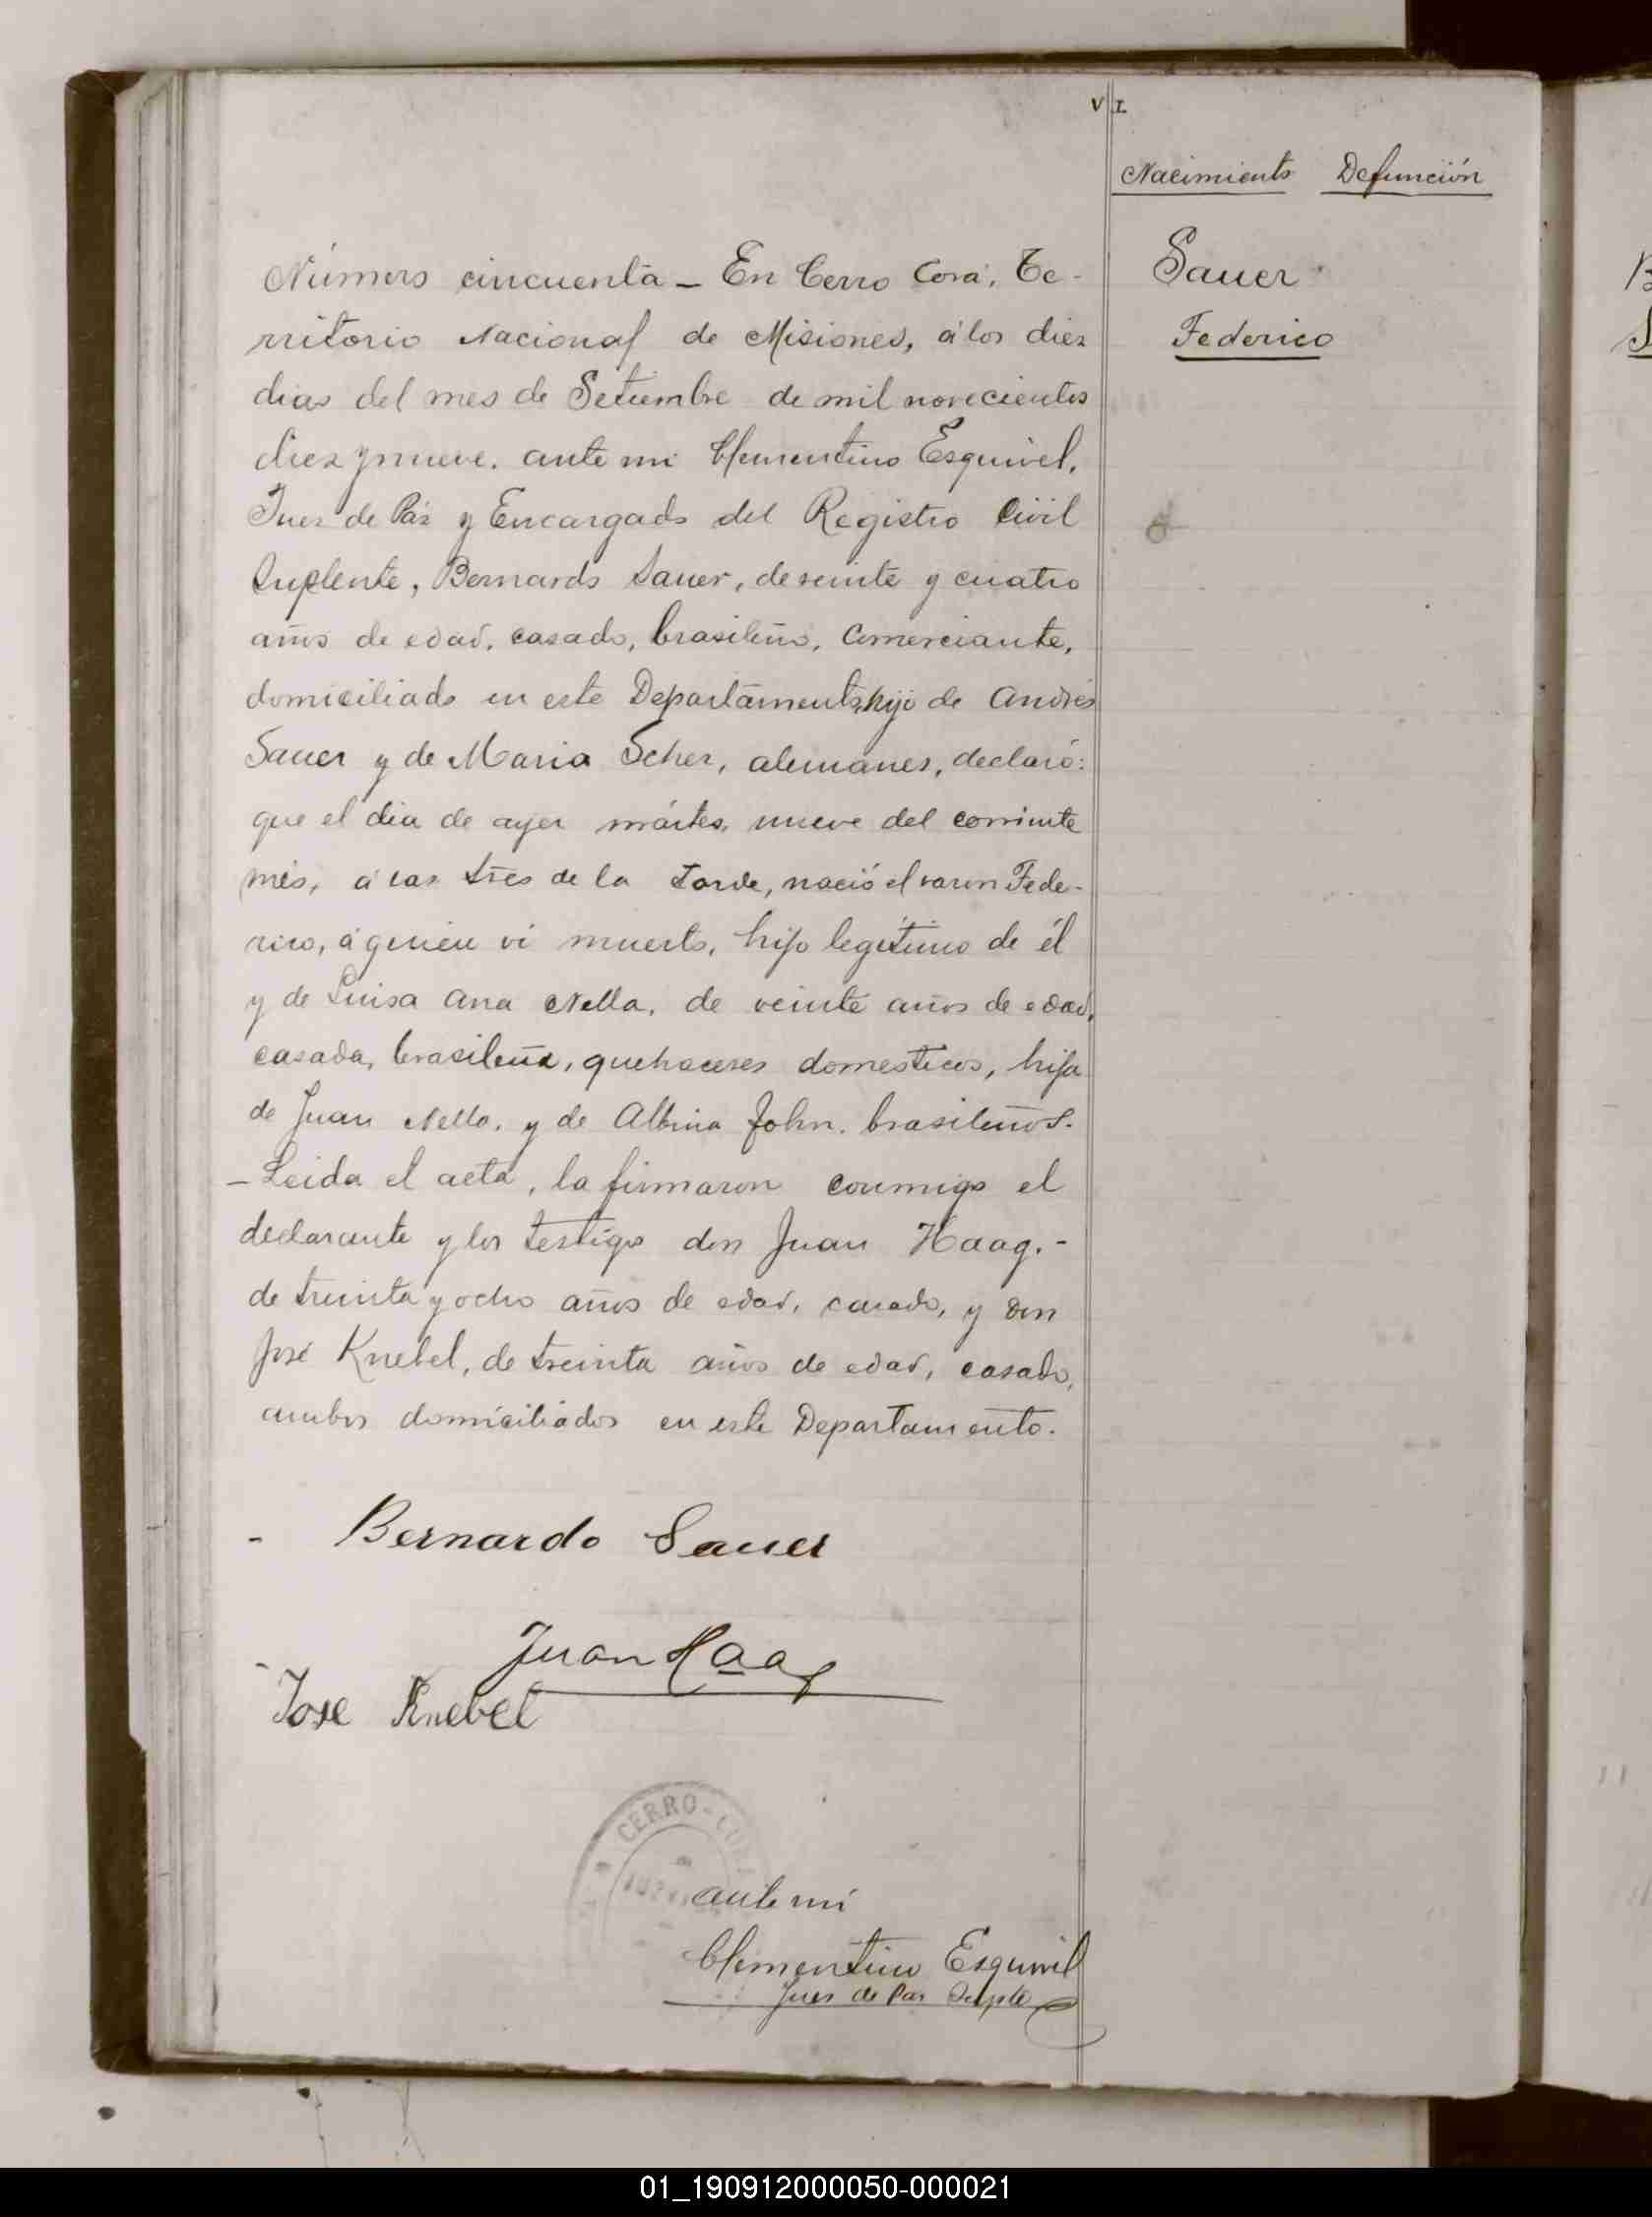 V I
Nacimiento Defunción
Sauer
Federico
Número cincuenta – En Cerro Corá, Te-
rritorio Nacional de Misiones, á los diez
dias del mes de Setiembre de mil novecientos
diez y nueve. ante mi Clementino Esquivel,
Juez de Páz y Encargado del Registro Civil
Suplente, Bernardo Sauer, de veinte y cuatro
años de edad, casado, brasileño, Comerciante,
domiciliado en este Departamento, hijo de Andrés
Sauer y de Maria Scher, alemanes, declaró:
que el dia de ayer mártes, nueve del corriente
més, á las tres de la tarde, nació el varon Fede-
rico, á quien vi muerto, hijo legítimo de él
y de Luisa Ana Nella, de veinte años de edad,
casada, brasileña, quehaceres domesticos, hija
de Juan Nella, y de Albina John. brasileños.
– Leida el acta, la firmaron conmigo el
declarante y los testigos don Juan Haag. -
de treinta y ocho años de edad, casado, y don
José Knebel, de treinta años de edad, casado,
ambos domiciliados en este Departamento.
- Bernardo Sauer
Juan Haag
Jose Knebel
CERRO-CORÁ
ante mí
Clementino Esquivel
Juez de Paz Suplte
01_190912000050-000021